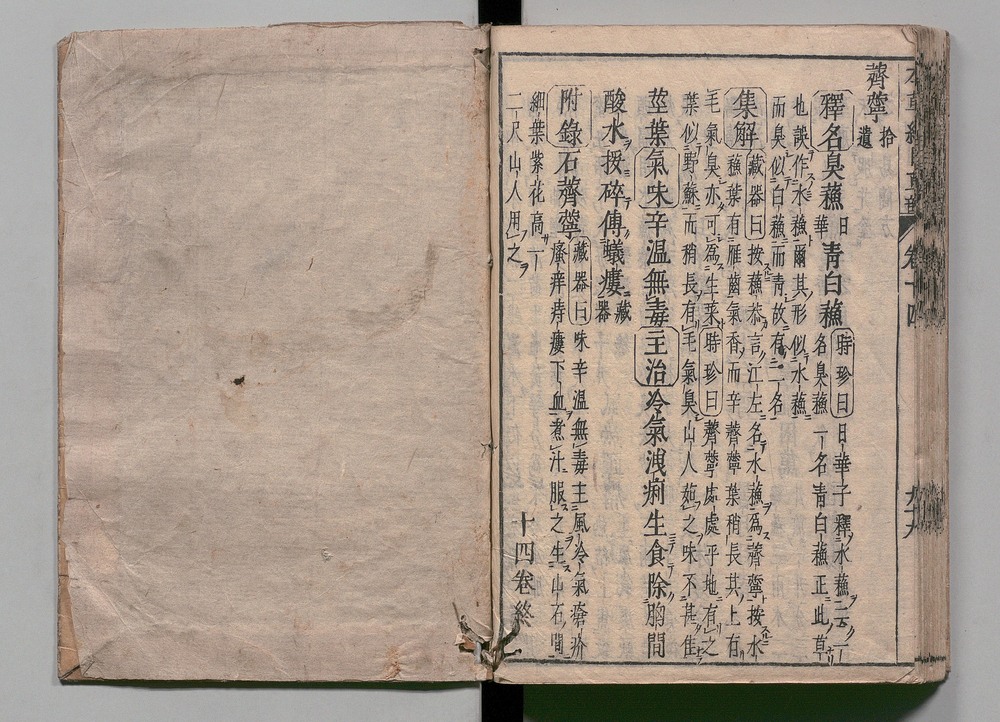 本草綱目草部 卷十四 九十九
薺薴 拾遺
釋名臭蘇 日華 青白蘇 時珍曰日華子釋水蘇云一名臭蘇一名青白蘇正此草
也誤作水蘇爾其形似水蘇
而臭似白蘇而青故有二名
集解 藏器曰按蘇恭言江左名水蘇爲薺薴按水蘇葉有雁齒氣香而辛薺薴葉稍長其上有
毛氣臭亦可爲生菜時珍曰薺薴處處平地有之
葉似野蘇而稍長有毛氣臭山人茹之味不甚佳
莖葉氣味辛溫無毒主治冷氣洩痢生食除胸間
酸水挼碎傅蟻瘻 藏器
附錄石薺薴 藏器曰味辛溫無毒主風冷氣瘡疥瘙痒痔瘻下血煮汁服之生山石間
細葉紫花高一
二尺山人用之
十四卷終